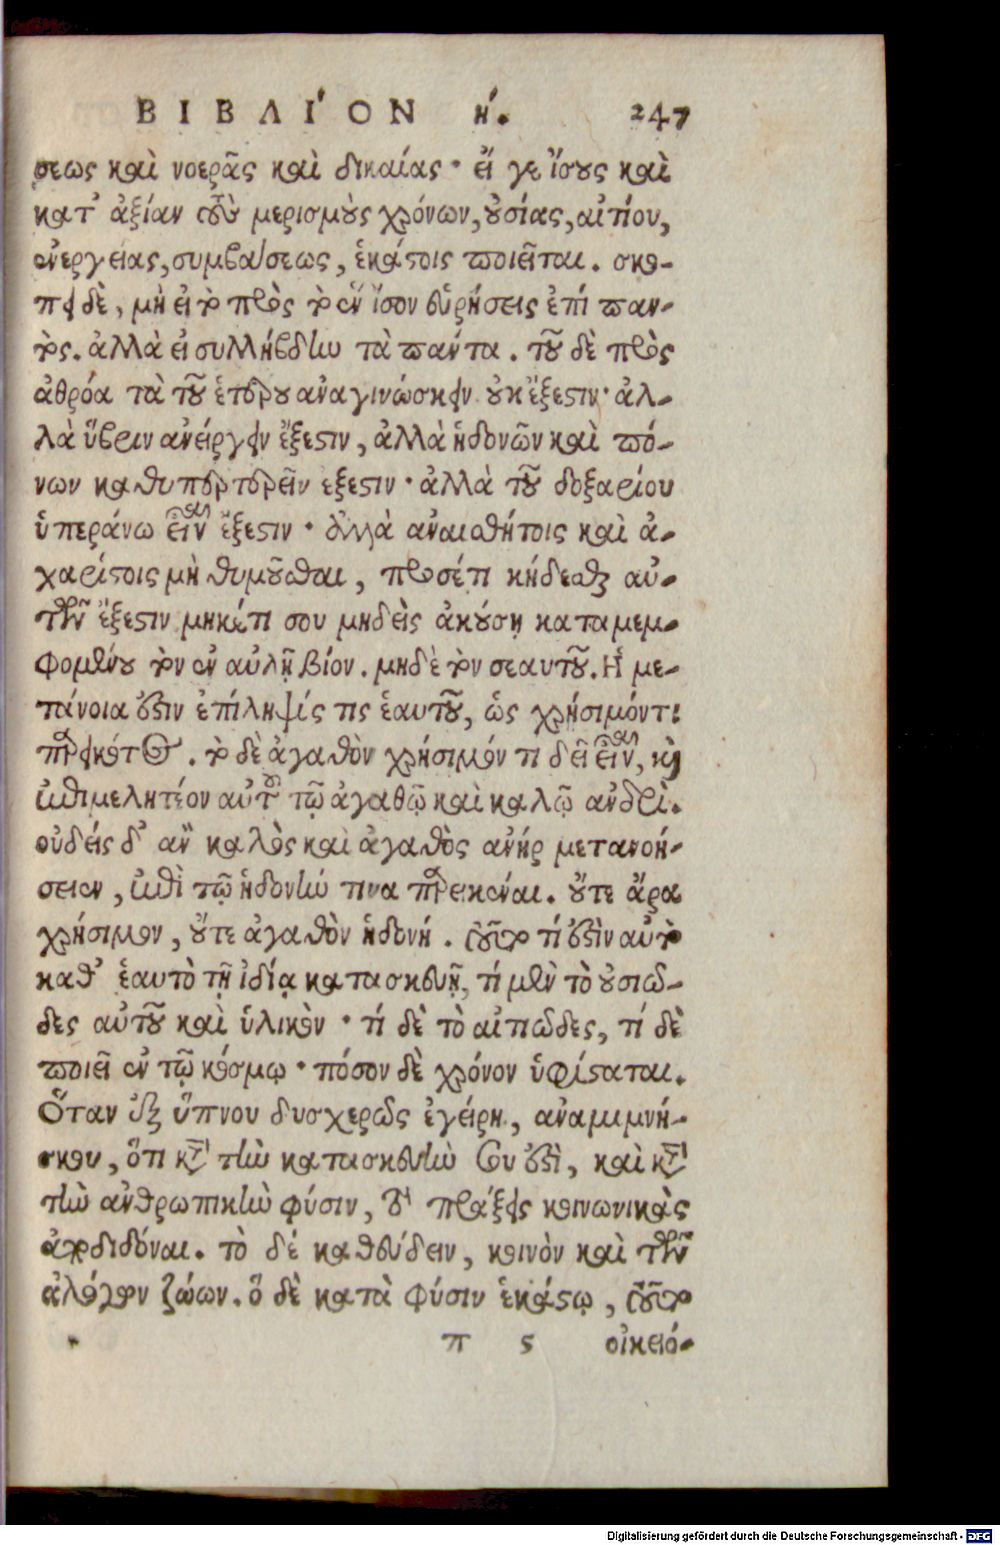 ΒΙΒΛΙ΄ΟΝ η΄. 247
σεως καὶ νοερᾶς καὶ δικαίας· εἴ γε ἴσους καὶ
κατ᾽ ἀξίαν τοὺς μερισμοὺς χρόνων, οὐσίας, αἰτίου,
ἐνεργείας, συμβάσεως, ἑκάστοις ποιεῖται. σκό-
πει δὲ, μὴ εἰ τὸ πρὸς τὸ ἓν ἴσον εὑρήσεις ἐπὶ παν-
τός. ἀλλὰ εἰ συλλήβδην τὰ πάντα. τοῦ δὲ πρὸς
ἀθρόα τὰ τοῦ ἑτέρου ἀναγινώσκειν οὐκ ἔξεστιν· ἀλ-
λὰ ὕβριν ἀνείργειν ἔξεστιν, ἀλλὰ ἡδονῶν καὶ πό-
νων καθυπερτερεῖν εξεστιν· ἀλλὰ τοῦ δοξαρίου
ὑπεράνω εἶναι ἔξεστιν· ἀλλὰ ἀναισθήτοις καὶ ἀ-
χαρίστοις μὴ θυμοῦσθαι, προσέτι κήδεσθαι αὐ-
τῶν ἔξεστιν μηκέτι σου μηδεὶς ἀκούσῃ καταμεμ-
φομένου τὸν ἐν αὐλῇ βίον. μηδὲ τὸν σεαυτοῦ. Ἡ με-
τάνοια ἐστιν ἐπίληψίς τις ἑαυτοῦ, ὡς χρήσιμόν τι
παρεικότος. τὸ δὲ ἀγαθὸν χρήσιμόν τι δεῖ εἶναι, καὶ
ἐπιμελητέον αὐτοῦ τῷ ἀγαθῷ καὶ καλῷ ἀνδρί.
οὐδείς δ᾽ ἂν καλὸς καὶ ἀγαθὸς ἀνήρ μετανοή-
σειεν, ἐπὶ τῷ ἡδονήν τινα παρεικέναι. οὔτε ἄρα
χρήσιμον, οὔτε ἀγαθὸν ἡδονή. τοῦτο τί ἐστὶν αὐτὸ
καθ᾽ ἑαυτὸ τῇ ἰδίᾳ κατασκευῇ, τί μὲν τὸ οὐσιῶ-
δες αὐτοῦ καὶ ὑλικὸν· τί δὲ τὸ αἰτιῶδες, τί δὲ
ποιεῖ ἐν τῷ κόσμῳ· πόσον δὲ χρόνον ὑφίσταται.
Ὅταν ἐξ ὕπνου δυσχερῶς ἐγείρῃ, ἀναμιμνή-
σκου, ὅτι κατὰ τὴν κατασκευήν σου ἐστὶ, καὶ κατὰ
τὴν ἀνθρωπικὴν φύσιν, τὸ πράξεις κοινωνικὰς
ἀποδιδόναι. τὸ δέ καθεύδειν, κοινὸν καὶ τῶν
ἀλόγων ζώων. ὃ δὲ κατὰ φύσιν ἑκάστῳ, τοῦτο
π 5 οἰκειό-
Digitalisierung gefördert durch die Deutsche Forschungsgemeinschaft - DFG